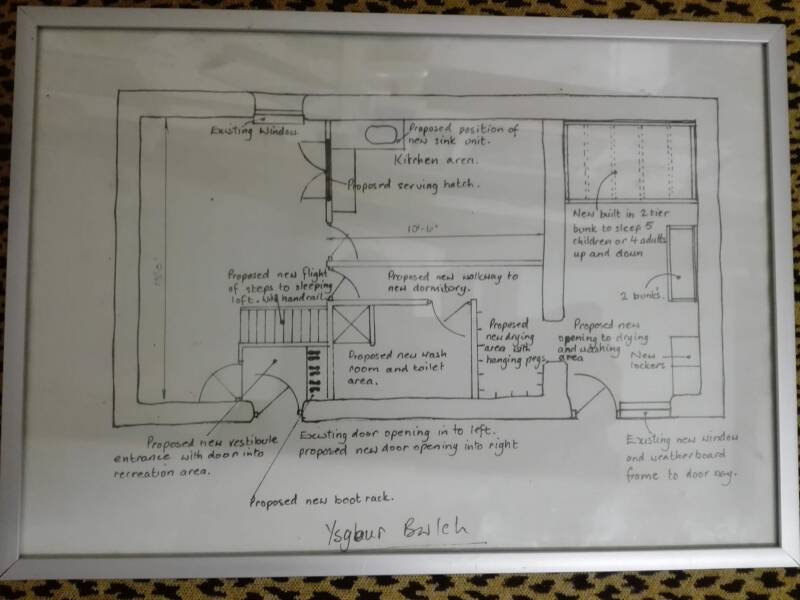 Existing Window
Proposed position of
new sink unit.
Kitchen area.
Proposed serving hatch.
New built in 2 tier
bunk to sleep 5
children or 4 adults
up and down
10'-6"
Proposed new flight
of steps to sleeping
loft. with handrail.
Proposed new walkway to
new dormitory.
2 bunks.
Proposed
new drying
area with
hanging pegs.
Proposed new
opening to drying
and washing
area
Proposed new wash
room and toilet
area.
New
lockers
Proposed new vestibule
entrance with door into
recreation area.
Existing door opening in to left.
proposed new door opening into right
Existing new window
and weatherboard
frame to door way.
Proposed new boot rack.
Ysgbur Bwlch